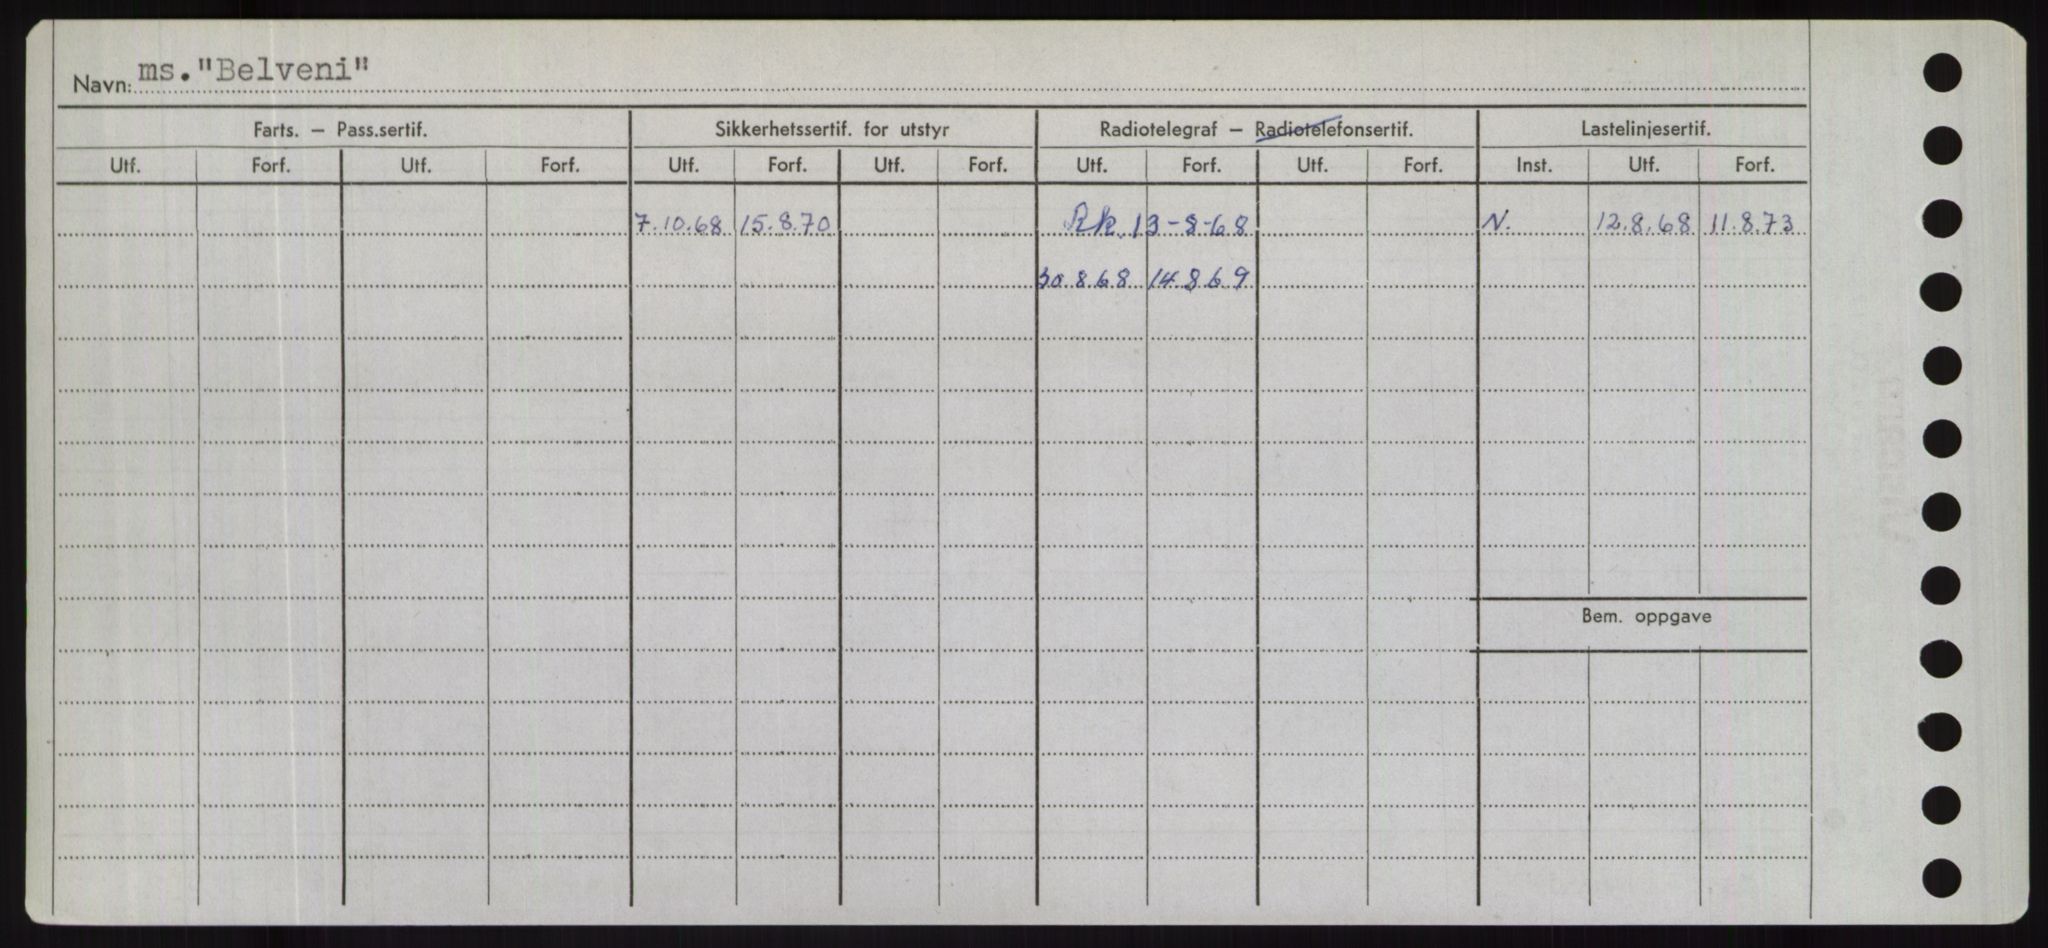 Navn: ms. "Belveni"
Farts. – Pass.sertif. Sikkerhetssertif. for utstyr Radiotelegraf – Radiotelefonsertif. Lastelinjesertif.
Utf. Forf. Utf. Forf. Utf. Forf. Utf. Forf. Utf. Forf. Utf. Forf. Inst. Utf. Forf.
7.10.68 15.8.70 Rk. 13-8-68 N. 12.8.68 11.8.73
30.8.68 14.8.69
Bem. oppgave